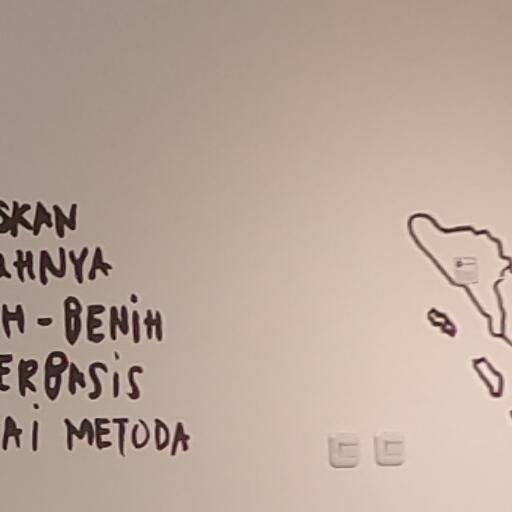 SKAN
AHNYA
H-BENiH
ERBASiS
Ai METODA